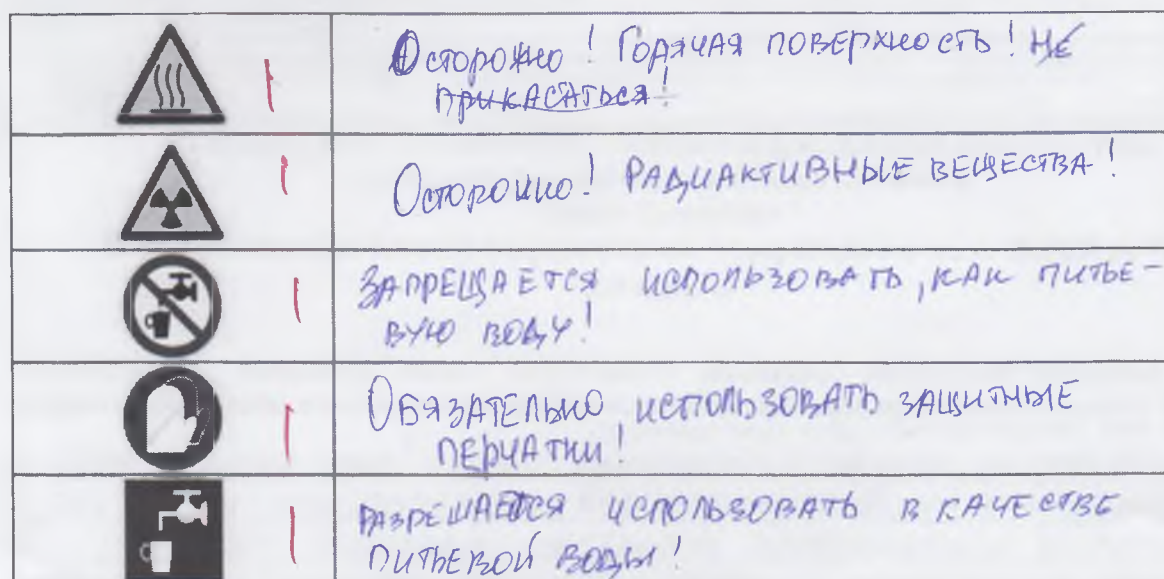 Осторожно! Горячая поверхность! Не
прикасаться!
Осторожно! Радиактивные вещества!
Запрещается использовать, как питье-
вую воду!
Обязательно использовать защитные
перчатки!
Разрешается использовать в качестве
питьевой воды!